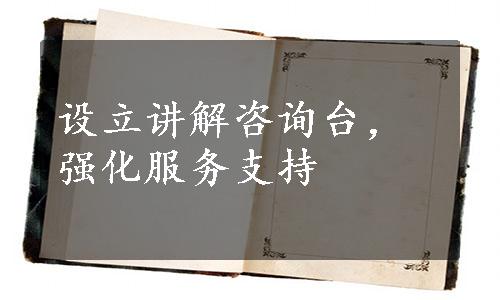 设立讲解咨询台，
强化服务支持